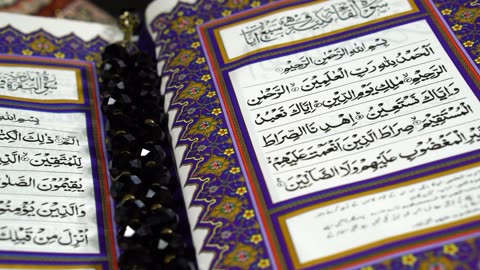 سُوْرَةُ الْفَاتِحَةِ مَكِّيَّةٌ وَّهِىَ سَبْعُ اٰيَات
بِسْمِ اللهِ الرَّحْمٰنِ الرَّحِيْمِ
اَلْحَمْدُ لِلّٰهِ رَبِّ الْعٰلَمِيْنَ الرَّحْمٰنِ
الرَّحِيْمِ مٰلِكِ يَوْمِ الدِّيْنِ اِيَّاكَ نَعْبُدُ
وَاِيَّاكَ نَسْتَعِيْنُ اِهْدِنَا الصِّرَاطَ
الْمُسْتَقِيْمَ صِرَاطَ الَّذِيْنَ اَنْعَمْتَ عَلَيْهِمْ
غَيْرِ الْمَغْضُوْبِ عَلَيْهِمْ وَلَا الضَّآلِّيْنَ
بِسْمِ اللهِ
الٓمّٓ ذٰلِكَ الْكِتٰ
لِّلْمُتَّقِيْنَ الَّذِ
يُقِيْمُوْنَ الصَّلٰو
وَالَّذِيْنَ يُؤْمِنُو
اُنْزِلَ مِنْ قَبْلِكَ